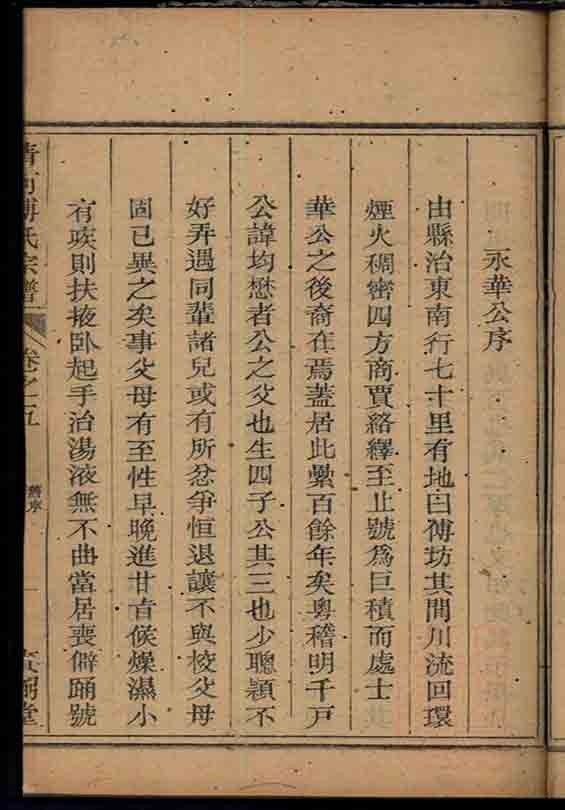 永華公序
由縣治東南行七十里有地曰傅坊其間川流回環
煙火稠密四方商賈絡繹至止號為巨積而處士
華公之後裔在焉蓋居此纍百餘年矣粵稽明千戶
公諱均懋者公之父也生四子公其三也少聰穎不
好弄遇同輩諸兒或有所忿爭恒退讓不與校父母
固已異之矣事父母有至性早晚進甘旨候燥濕小
有疾則扶掖臥起手治湯液無不曲當居喪僻踊號
清河傅氏宗譜
卷之五
舊序
一
堂